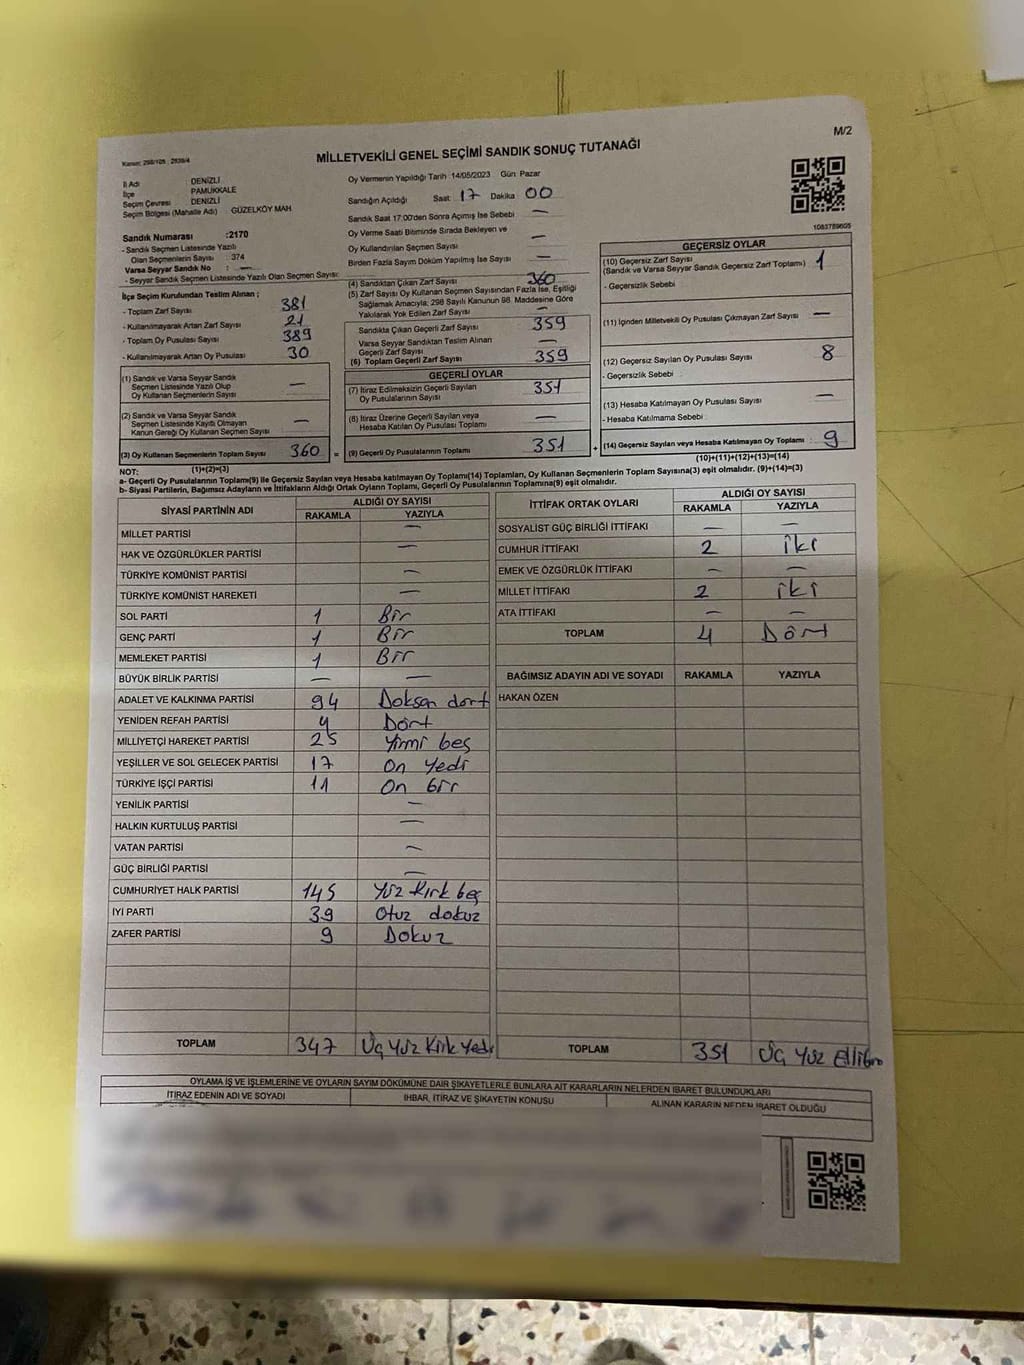 M/2
Kanun: 298/105 , 2839/4
MİLLETVEKİLİ GENEL SEÇİMİ SANDIK SONUÇ TUTANAĞI
İl Adı DENİZLİ
İlçe PAMUKKALE
Seçim Çevresi DENİZLİ
Seçim Bölgesi (Mahalle Adı) : GÜZELKÖY MAH.
Sandık Numarası :2170
- Sandık Seçmen Listesinde Yazılı
Olan Seçmenlerin Sayısı : 374
Varsa Seyyar Sandık No : —
- Seyyar Sandık Seçmen Listesinde Yazılı Olan Seçmen Sayısı:
Oy Vermenin Yapıldığı Tarih :14/05/2023 Gün: Pazar
Sandığın Açıldığı Saat: 17 Dakika 00
Sandık Saat 17:00'den Sonra Açımış İse Sebebi —
Oy Verme Saati Bitiminde Sırada Bekleyen ve
Oy Kullandırılan Seçmen Sayısı —
Birden Fazla Sayım Döküm Yapılmış İse Sayısı —
1083789605
İlçe Seçim Kurulundan Teslim Alınan ;
- Toplam Zarf Sayısı 381
- Kullanılmayarak Artan Zarf Sayısı 21
- Toplam Oy Pusulası Sayısı 389
- Kullanılmayarak Artan Oy Pusulası 30
(1) Sandık ve Varsa Seyyar Sandık
Seçmen Listesinde Yazılı Olup
Oy Kullanan Seçmenlerin Sayısı —
(2) Sandık ve Varsa Seyyar Sandık
Seçmen Listesinde Kayıtlı Olmayan
Kanun Gereği Oy Kullanan Seçmen Sayısı —
(3) Oy Kullanan Seçmenlerin Toplam Sayısı 360 =
(1)+(2)=(3)
(4) Sandıktan Çıkan Zarf Sayısı 360
(5) Zarf Sayısı Oy Kullanan Seçmen Sayısından Fazla İse, Eşitliği
Sağlamak Amacıyla; 298 Sayılı Kanunun 98. Maddesine Göre
Yakılarak Yok Edilen Zarf Sayısı —
Sandıkta Çıkan Geçerli Zarf Sayısı 359
Varsa Seyyar Sandıktan Teslim Alınan
Geçerli Zarf Sayısı —
(6) Toplam Geçerli Zarf Sayısı 359
GEÇERLİ OYLAR
(7) İtiraz Edilmeksizin Geçerli Sayılan
Oy Pusulalarının Sayısı 351
(8) İtiraz Üzerine Geçerli Sayılan veya
Hesaba Katılan Oy Pusulası Toplamı —
(9) Geçerli Oy Pusulalarının Toplamı 351 +
GEÇERSİZ OYLAR
(10) Geçersiz Zarf Sayısı
(Sandık ve Varsa Seyyar Sandık Geçersiz Zarf Toplamı) 1
- Geçersizlik Sebebi
(11) İçinden Milletvekili Oy Pusulası Çıkmayan Zarf Sayısı —
(12) Geçersiz Sayılan Oy Pusulası Sayısı 8
- Geçersizlik Sebebi :
(13) Hesaba Katılmayan Oy Pusulası Sayısı —
- Hesaba Katılmama Sebebi :
(14) Geçersiz Sayılan veya Hesaba Katılmayan Oy Toplamı : 9
(10)+(11)+(12)+(13)=(14)
NOT:
a- Geçerli Oy Pusulalarının Toplamı(9) ile Geçersiz Sayılan veya Hesaba katılmayan Oy Toplamı(14) Toplamları, Oy Kullanan Seçmenlerin Toplam Sayısına(3) eşit olmalıdır. (9)+(14)=(3)
b- Siyasi Partilerin, Bağımsız Adayların ve İttifakların Aldığı Ortak Oyların Toplamı, Geçerli Oy Pusulalarının Toplamına(9) eşit olmalıdır.
SİYASİ PARTİNİN ADI ALDIĞI OY SAYISI
RAKAMLA YAZIYLA
MİLLET PARTİSİ —
HAK VE ÖZGÜRLÜKLER PARTİSİ —
TÜRKİYE KOMÜNİST PARTİSİ —
TÜRKİYE KOMÜNİST HAREKETİ —
SOL PARTİ 1 Bir
GENÇ PARTİ 1 Bir
MEMLEKET PARTİSİ 1 Bir
BÜYÜK BİRLİK PARTİSİ — —
ADALET VE KALKINMA PARTİSİ 94 Doksan dört
YENİDEN REFAH PARTİSİ 4 Dört
MİLLİYETÇİ HAREKET PARTİSİ 25 Yirmi beş
YEŞİLLER VE SOL GELECEK PARTİSİ 17 On Yedi
TÜRKİYE İŞÇİ PARTİSİ 11 On bir
YENİLİK PARTİSİ —
HALKIN KURTULUŞ PARTİSİ —
VATAN PARTİSİ —
GÜÇ BİRLİĞİ PARTİSİ —
CUMHURİYET HALK PARTİSİ 145 Yüz Kırk beş
İYİ PARTİ 39 Otuz dokuz
ZAFER PARTİSİ 9 Dokuz
TOPLAM 347 Üç Yüz Kırk Yedi
İTTİFAK ORTAK OYLARI ALDIĞI OY SAYISI
RAKAMLA YAZIYLA
SOSYALİST GÜÇ BİRLİĞİ İTTİFAKI — —
CUMHUR İTTİFAKI 2 İki
EMEK VE ÖZGÜRLÜK İTTİFAKI — —
MİLLET İTTİFAKI 2 iki
ATA İTTİFAKI — —
TOPLAM 4 Dört
BAĞIMSIZ ADAYIN ADI VE SOYADI RAKAMLA YAZIYLA
HAKAN ÖZEN
TOPLAM 351 Üç Yüz Ellibir
OYLAMA İŞ VE İŞLEMLERİNE VE OYLARIN SAYIM DÖKÜMÜNE DAİR ŞİKAYETLERLE BUNLARA AİT KARARLARIN NELERDEN İBARET BULUNDUKLARI
İTİRAZ EDENİN ADI VE SOYADI İHBAR, İTİRAZ VE ŞİKAYETİN KONUSU ALINAN KARARIN NEDEN İBARET OLDUĞU